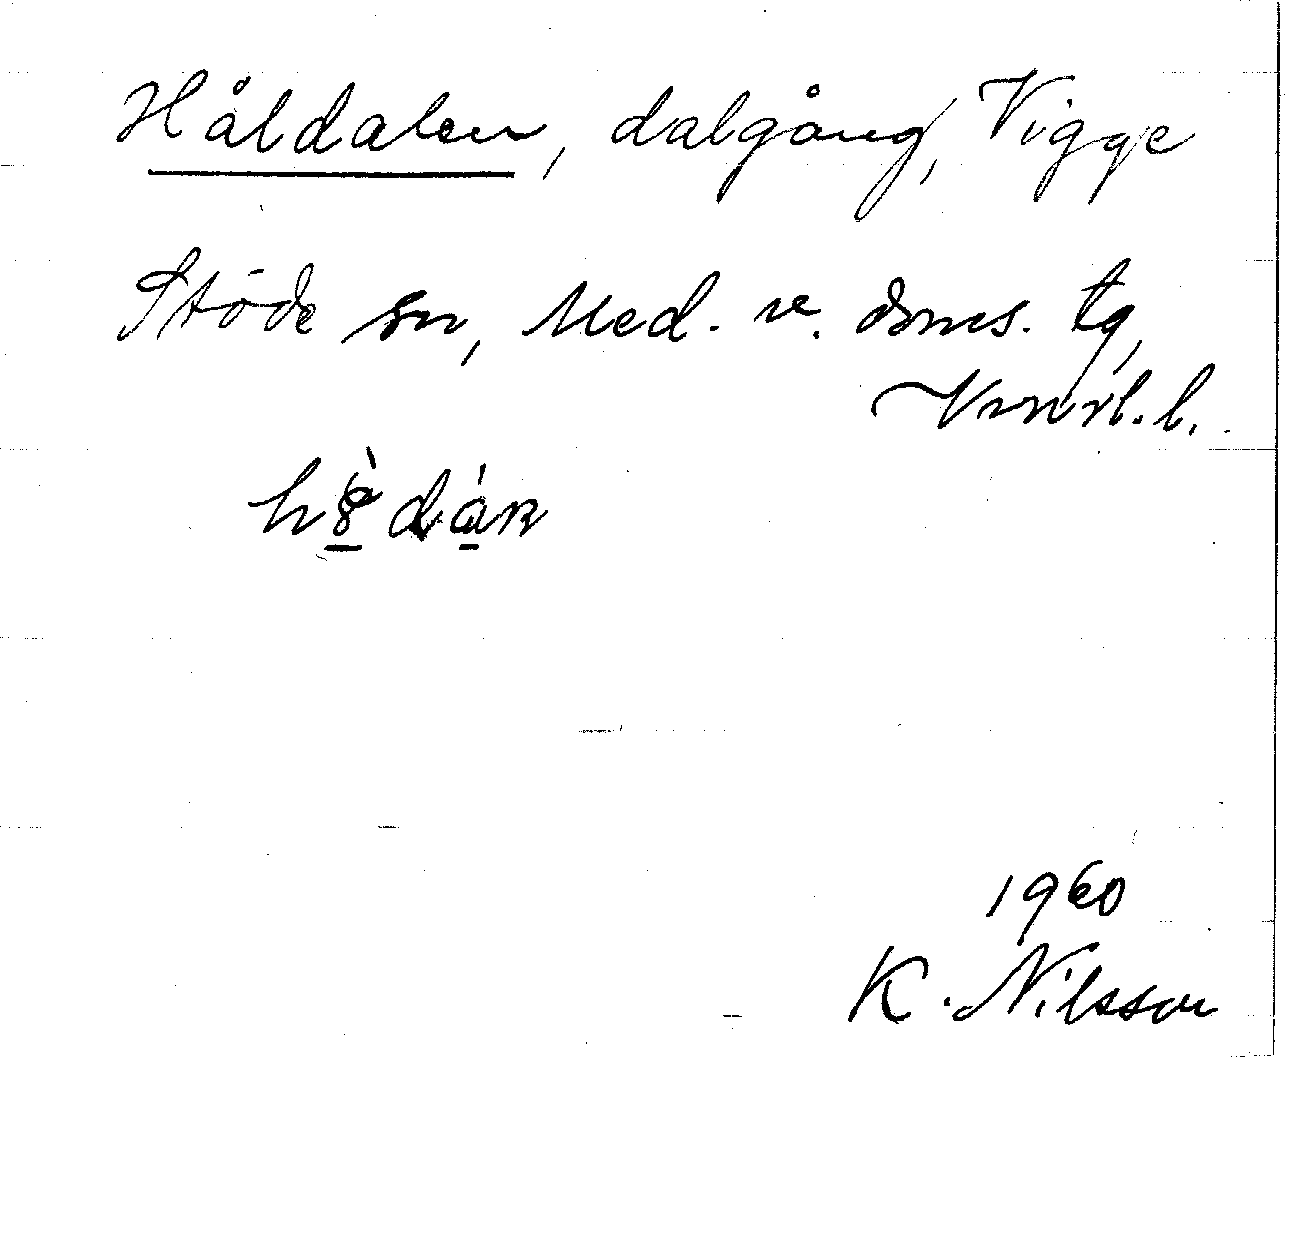 Håldalen, dalgång, Vigge
Stöde sn, Med. v. doms. tg,
Vnrl. l.
1960
K. Nilsson